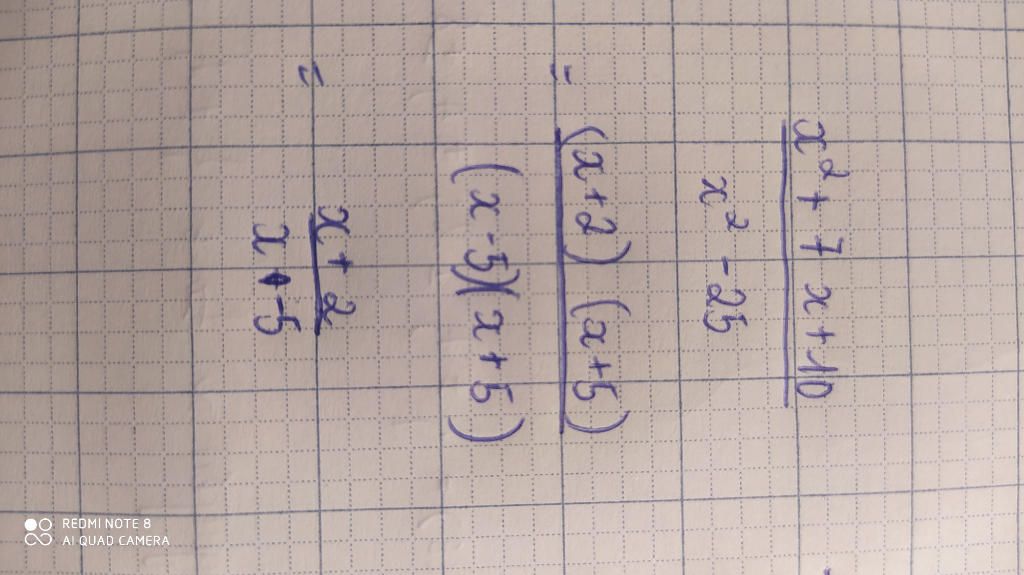 x² + 7x + 10
x² - 25
= (x+2) (x+5)
(x-5)(x+5)
= x + 2
x - 5
REDMI NOTE 8
AI QUAD CAMERA